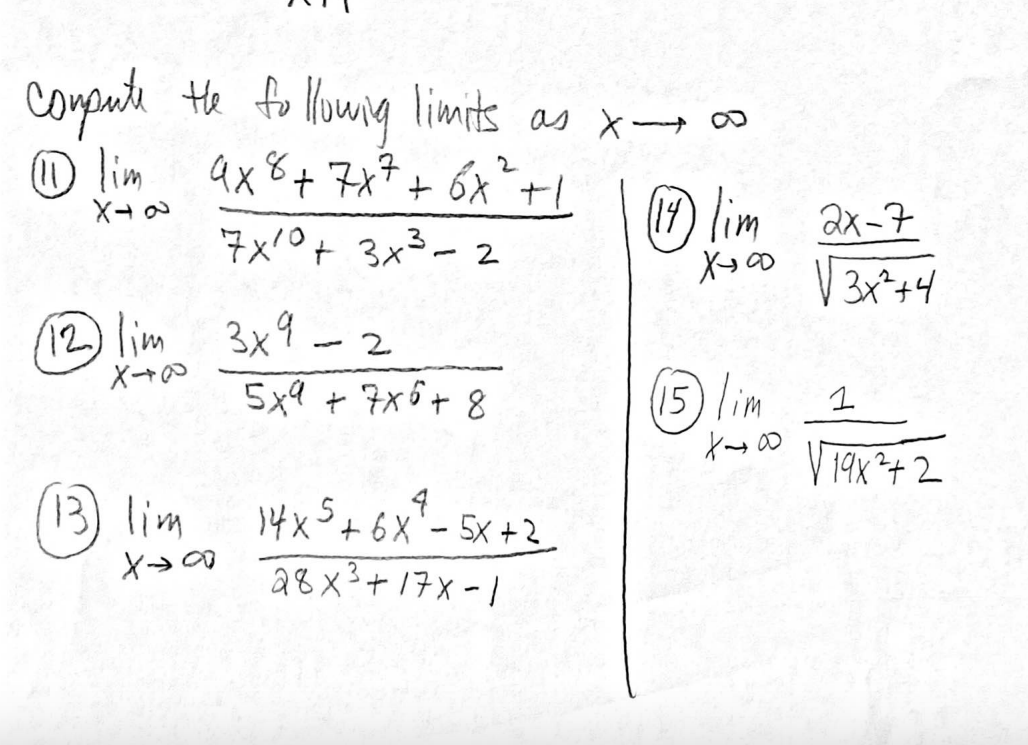 Compute the following limits as x → ∞
⑪ lim x→∞ (9x^8 + 7x^7 + 6x^2 + 1) / (7x^10 + 3x^3 - 2)
⑫ lim x→∞ (3x^9 - 2) / (5x^9 + 7x^6 + 8)
⑬ lim x→∞ (14x^5 + 6x^4 - 5x + 2) / (28x^3 + 17x - 1)
⑭ lim x→∞ (2x-7) / √(3x^2+4)
⑮ lim x→∞ 1 / √(19x^2+2)